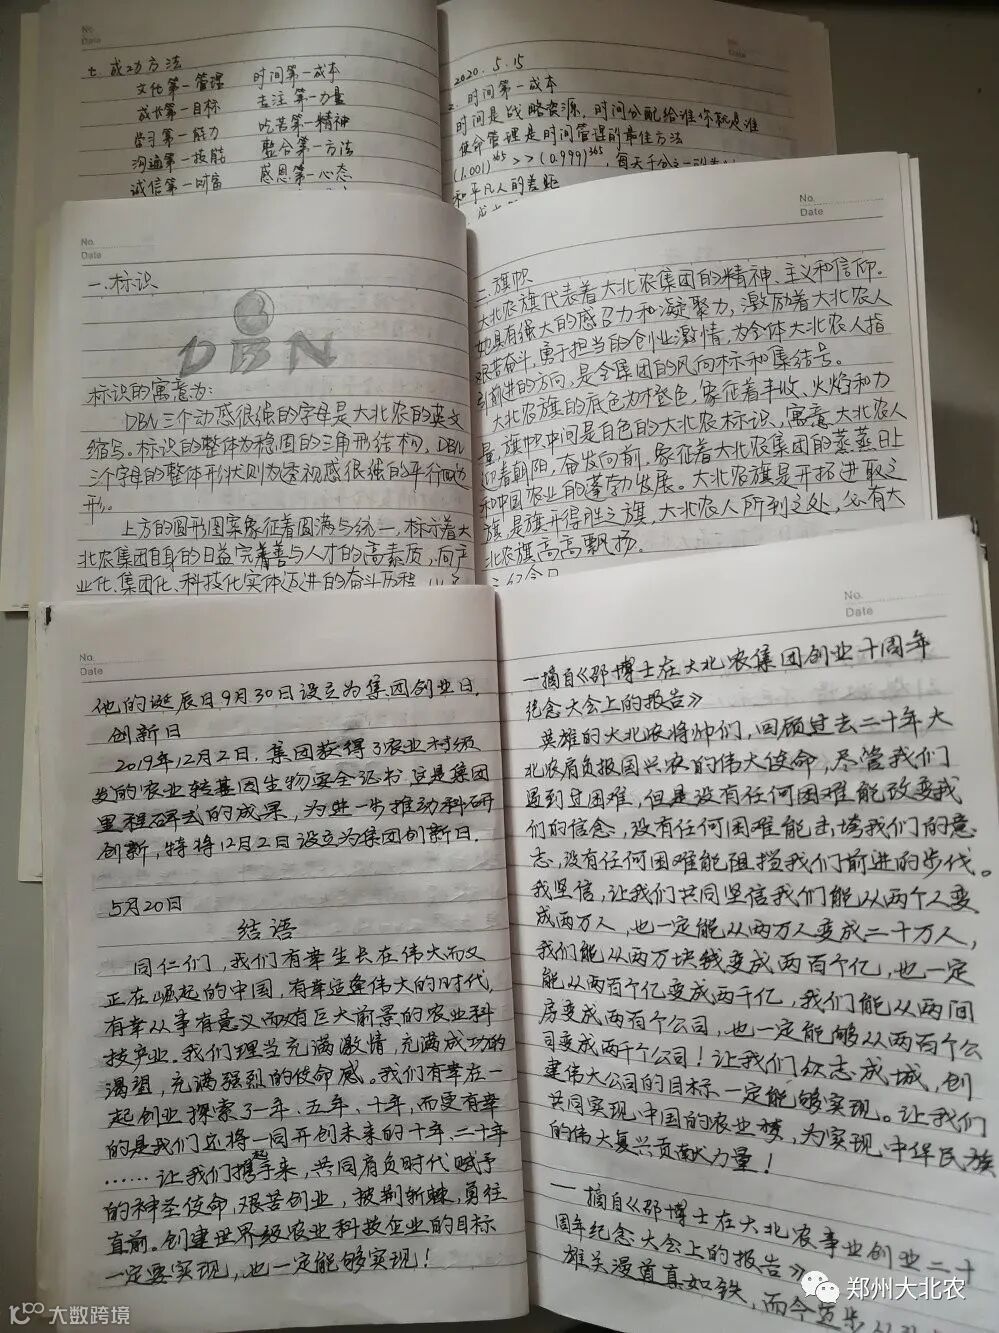 No.
Date
七.成功方法
文化第一管理 时间第一成本
成长第一目标 专注第一力量
学习第一能力 吃苦第一精神
沟通第一技能 整合第一方法
诚信第一财富 感恩第一心态
2020.5.15
2. 时间第一成本
时间是战略资源,时间分配给谁你就是谁
使命管理是时间管理的最佳方法
(1.001)^365 >> (0.999)^365,每天千分之一
和平凡人的差距
No.
Date
一.标识
DBN
标识的寓意为:
DBN三个动感很强的字母是大北农的英文
缩写。标识的整体为稳固的三角形结构,DBN
三个字母的整体形状则为透视感很强的平行四边
形。
上方的圆形图案象征着圆满与统一,标示着大
北农集团自身的日益完善与人才的高素质,向产
业化、集团化、科技化实体迈进的奋斗历程
No.
Date
二.旗帜
大北农旗代表着大北农集团的精神、主义和信仰.
她具有强大的感召力和凝聚力,激励着大北农人
艰苦奋斗,勇于担当的创业激情,为全体大北农人指
引前进的方向,是全集团的风向标和集结号。
大北农旗的底色为橙色,象征着丰收、火焰和力
量,旗帜中间是白色的大北农标识,寓意大北农人
迎着朝阳,奋发向前,象征着大北农集团的蒸蒸日上
和中国农业的蓬勃发展。大北农旗是开拓进取之
旗,是旗开得胜之旗,大北农人所到之处,必有大
北农旗高高飘扬.
No.
Date
他的诞辰日9月30日设立为集团创业日.
创新日
2019年12月2日,集团获得了农业村部
发的农业转基因生物安全证书.这是集团
里程碑式的成果,为进一步推动科研
创新,特将12月2日设立为集团创新日.
5月20日
结语
同仁们,我们有幸生长在伟大而又
正在崛起的中国,有幸适逢伟大的时代,
有幸从事有意义而又有巨大前景的农业科
技产业。我们理当充满激情,充满成功的
渴望,充满强烈的使命感。我们有幸在一
起创业探索了一年、五年、十年,而更有幸
的是我们还将一同开创未来的十年、二十年
……让我们携起手来,共同肩负时代赋予
的神圣使命,艰苦创业,披荆斩棘,勇往
直前。创建世界级农业科技企业的目标
一定要实现,也一定能够实现!
No.
Date
—摘自《邵博士在大北农集团创业十周年
纪念大会上的报告》
英雄的大北农将帅们,回顾过去二十年大
北农肩负报国兴农的伟大使命,尽管我们
遇到过困难,但是没有任何困难能改变我
们的信念,没有任何困难能击垮我们的意
志,没有任何困难能阻挡我们前进的步伐。
我坚信,让我们共同坚信我们能从两个人变
成两万人,也一定能从两万人变成二十万人,
我们能从两万块钱变成两百个亿,也一定
能从两百个亿变成两千亿,我们能从两间
房变成两百个公司,也一定能够从两百个公
司变成两千个公司!让我们众志成城,创
建伟大公司的目标一定能够实现。让我们
共同实现中国的农业梦,为实现中华民族
的伟大复兴贡献力量!
—摘自《邵博士在大北农事业创业二十
周年纪念大会上的报告》
雄关漫道真如铁,而今迈步
大数跨境
郑州大北农